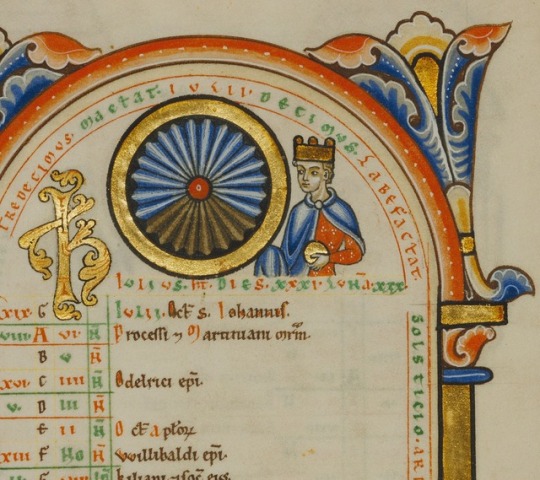 TREDECIMUS. mactat. IULII DECIMUS. LABEFACTAT.
IULIUS. ht. DIES. XXXI. LUNA. XXX
G IULII. Oct s. Iohannis.
VIII A VI N Processi ⁊ Martiniani mrm.
B V N
XVI C IIII N Odelrici epi.
V D III N
E II N Oct apłoꝝ
XIII F No N Willibaldi epi.
G Kiliani
SOLSTICIO. AR